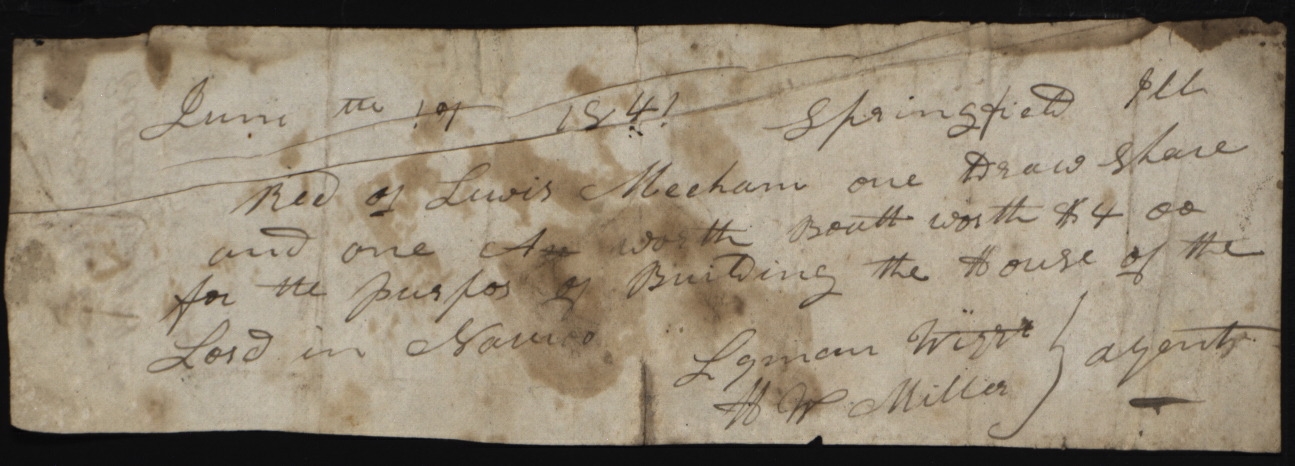 June th 1st 1841 Springfield Ill
Recd of Lewis Mecham one Draw Share
and one Ax worth Boath worth $4 00
for the purpos of Building the House of the
Lord in Nauvoo
Lyman Wight } agents
H W Miller